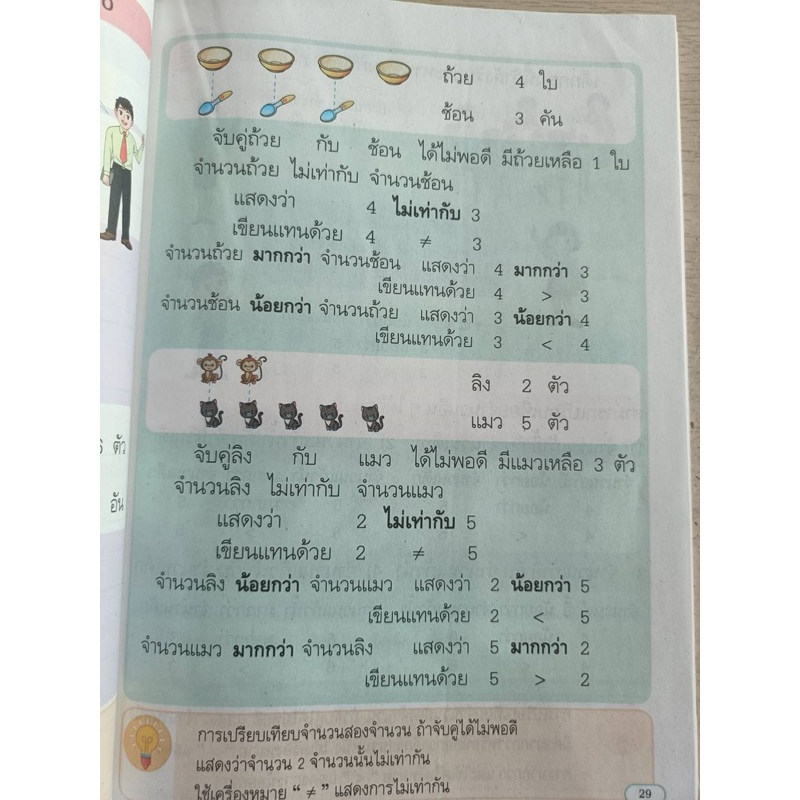 ถ้วย 4 ใบ
ช้อน 3 คัน
จับคู่ถ้วย กับ ช้อน ได้ไม่พอดี มีถ้วยเหลือ 1 ใบ
จำนวนถ้วย ไม่เท่ากับ จำนวนช้อน
แสดงว่า 4 ไม่เท่ากับ 3
เขียนแทนด้วย 4 ≠ 3
จำนวนถ้วย มากกว่า จำนวนช้อน แสดงว่า 4 มากกว่า 3
เขียนแทนด้วย 4 > 3
จำนวนช้อน น้อยกว่า จำนวนถ้วย แสดงว่า 3 น้อยกว่า 4
เขียนแทนด้วย 3 < 4
ลิง 2 ตัว
แมว 5 ตัว
จับคู่ลิง กับ แมว ได้ไม่พอดี มีแมวเหลือ 3 ตัว
จำนวนลิง ไม่เท่ากับ จำนวนแมว
แสดงว่า 2 ไม่เท่ากับ 5
เขียนแทนด้วย 2 ≠ 5
จำนวนลิง น้อยกว่า จำนวนแมว แสดงว่า 2 น้อยกว่า 5
เขียนแทนด้วย 2 < 5
จำนวนแมว มากกว่า จำนวนลิง แสดงว่า 5 มากกว่า 2
เขียนแทนด้วย 5 > 2
การเปรียบเทียบจำนวนสองจำนวน ถ้าจับคู่ได้ไม่พอดี
แสดงว่าจำนวน 2 จำนวนนั้นไม่เท่ากัน
ใช้เครื่องหมาย “ ≠ ” แสดงการไม่เท่ากัน
29
ตัว
อัน